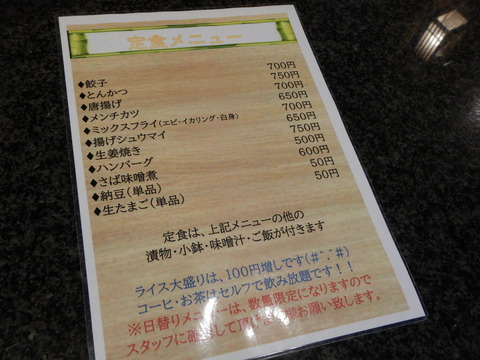 定食メニュー
◆餃子 700円
◆とんかつ 750円
◆唐揚げ 700円
◆メンチカツ 650円
◆ミックスフライ(エビ・イカリング・白身) 700円
◆揚げシュウマイ 650円
◆生姜焼き 750円
◆ハンバーグ 500円
◆さば味噌煮 600円
◆納豆(単品) 50円
◆生たまご(単品) 50円
定食は、上記メニューの他の
漬物・小鉢・味噌汁・ご飯が付きます
ライス大盛りは、100円増しです(#^.^#)
コーヒ・お茶はセルフで飲み放題です!!
※日替りメニューは、数量限定になりますので
スタッフに確認して頂けます様お願い致します。